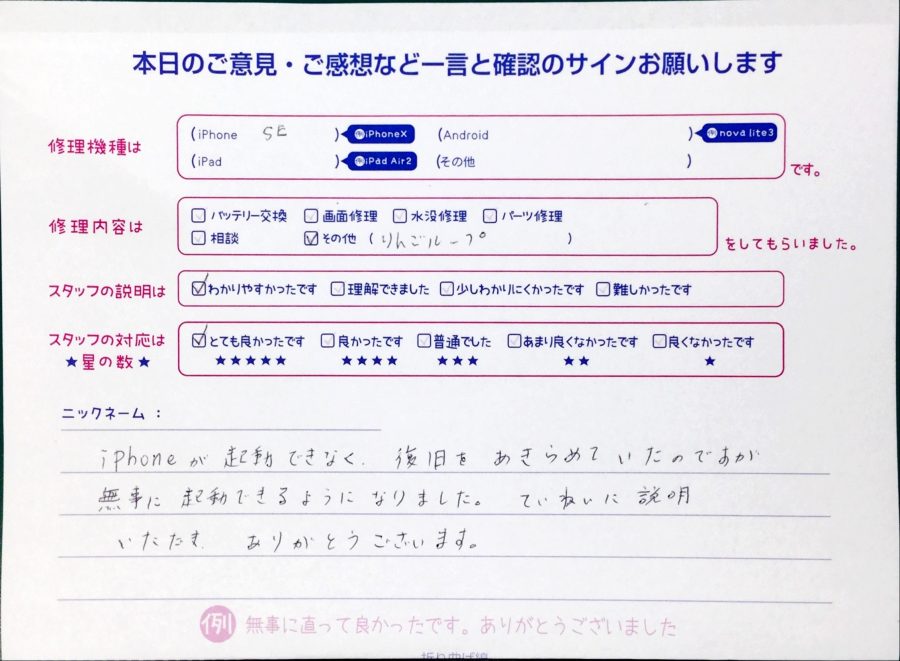 本日のご意見・ご感想など一言と確認のサインお願いします
修理機種は
(iPhone SE ) 例iPhoneX (Android ) 例nova lite3
(iPad ) 例iPad Air2 (その他 ) です。
修理内容は
バッテリー交換 画面修理 水没修理 パーツ修理
相談 その他 ( りんごループ ) をしてもらいました。
スタッフの説明は わかりやすかったです 理解できました 少しわかりにくかったです 難しかったです
スタッフの対応は とても良かったです 良かったです 普通でした あまり良くなかったです 良くなかったです
★星の数★ ★★★★★ ★★★★ ★★★ ★★ ★
ニックネーム:
iPhoneが起動できなく、復旧をあきらめていたのですが
無事に起動できるようになりました。ていねいに説明
いただき、ありがとうございます。
例 無事に直って良かったです。ありがとうございました